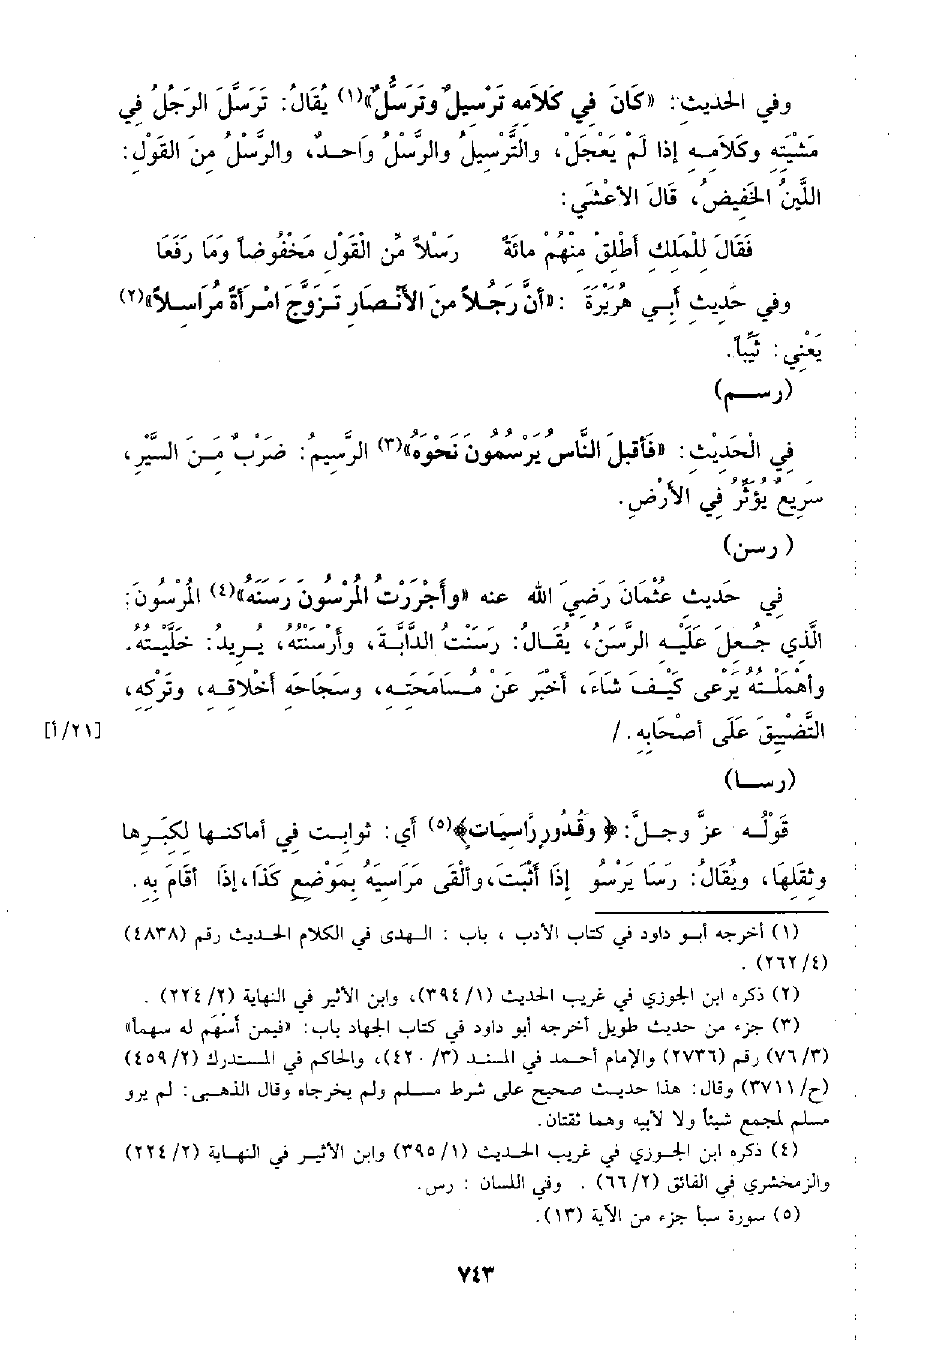 وفي الحديث: «كَانَ فِي كَلَامِهِ تَرْسِيلٌ وتَرَسُّلٌ»(١) يُقَالُ: تَرَسَّلَ الرَجُلُ فِي
مَشْيَتِهِ وكَلَامِهِ إِذا لَمْ يَعْجَلْ، والتَّرْسِيلُ والرَّسْلُ وَاحِدٌ، والرَّسْلُ مِنَ القَوْلِ:
اللَّيِّنُ الخَفِيضُ، قَالَ الأعْشَى:
فَقَالَ لِلْمَلِكِ أَطْلِقْ مِنْهُمُ مائَةً رَسْلاً مِّنَ الْقَوْلِ مَخْفُوضاً وَمَا رَفَعَا
وفي حَدِيثِ أَبِي هُرَيْرَةَ : «أنَّ رَجُلاً مِنَ الأَنْصَارِ تَزَوَّجَ امْرَأَةً مُرَاسِلاً»(٢)
يَعْنِي: ثَيِّباً.
(رسم)
فِي الْحَدِيْثِ: «فَأَقْبَلَ النَّاسُ يَرْسُمُونَ نَحْوَهُ»(٣) الرَّسِيمُ: ضَرَبٌ مِنَ السَّيْرِ،
سَرِيعٌ يُؤَثِّرُ فِي الأَرْضِ.
(رسن)
فِي حَدِيثِ عُثْمَانَ رَضِيَ اللَّه عنه «وأَجْرَرْتُ المُرْسُونَ رَسَنَهُ»(٤) المُرْسُونَ:
الَّذِي جُعِلَ عَلَيْهِ الرَّسَنُ، يُقَالُ: رَسَنْتُ الدَّابَةَ، وأَرْسَنْتُه، يُرِيدُ: خَلَّيْتُهُ.
وأهْمَلْتُهُ يَرْعَى كَيْفَ شَاءَ، أَخْبَرَ عَنْ مُسَامَحَتِهِ، وسَجَاحَةِ أخْلاقِهِ، وتَرْكِهِ،
التَّضْيِيقَ عَلَى أصْحَابِهِ. / [٢١/أ]
(رسا)
قَوْلُه عزَّ وَجلَّ: ﴿ وَقُدُورٍ رَّاسِيَاتٍ﴾(٥) أَي: ثوابت فِي أماكنها لِكِبَرِها
وثِقَلِهَا، ويُقَالُ: رَسَا يَرْسُو إِذَا أَثْبَتَ، وألْقَى مَرَاسِيَهُ بِمَوْضِعِ كَذَا، إِذَا أقَامَ بِهِ.
(١) أخرجه أبو داود في كتاب الأدب ، باب : الهدى في الكلام الحديث رقم (٤٨٣٨)
(٤/ ٢٦٢) .
(٢) ذكره ابن الجوزي في غريب الحديث (١/ ٣٩٤)، وابن الأثير في النهاية (٢/ ٢٢٤) .
(٣) جزء من حديث طويل أخرجه أبو داود في كتاب الجهاد باب: «فيمن أَسْهَم له سهماً»
(٣/ ٧٦) رقم (٢٧٣٦) والإمام أحمد في المسند (٣/ ٤٢٠)، والحاكم في المستدرك (٢/ ٤٥٩)
(ح/ ٣٧١١) وقال: هذا حديث صحيح على شرط مسلم ولم يخرجاه وقال الذهبي: لم يرو
مسلم لمجمع شيئاً ولا لأبيه وهما ثقتان.
(٤) ذكره ابن الجوزي في غريب الحديث (١/ ٣٩٥) وابن الأثير في النهاية (٢/ ٢٢٤)
والزمخشري في الفائق (٢/ ٦٦) . وفي اللسان : رس.
(٥) سورة سبأ جزء من الآية (١٣).
٧٤٣